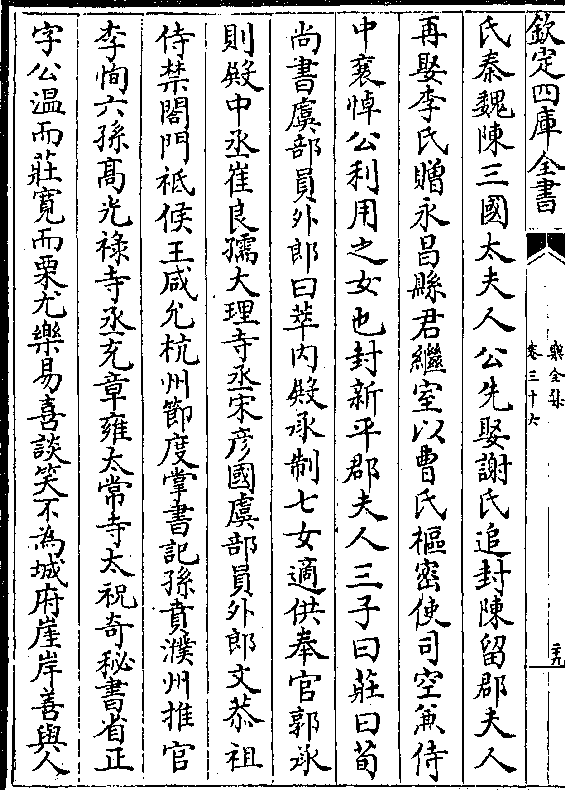 欽定四庫全書
樂全集
卷三十六
氏秦魏陳三國太夫人公先娶謝氏追封陳留郡夫人
再娶李氏贈永昌縣君繼室以曹氏樞密使司空兼侍
中襄悼公利用之女也封新平郡夫人三子曰莊曰荀
尚書虞部員外郎曰莘内殿承制七女適供奉官郭承
則殿中丞崔良孺大理寺丞宋彦國虞部員外郎文恭祖
侍禁閤門祗候王咸允杭州節度掌書記孫賁濮州推官
李恂六孫髙光禄寺丞充章雍太常寺太祝奇秘書省正
字公温而莊寛而栗尤樂易喜談笑不為城府崖岸善與人